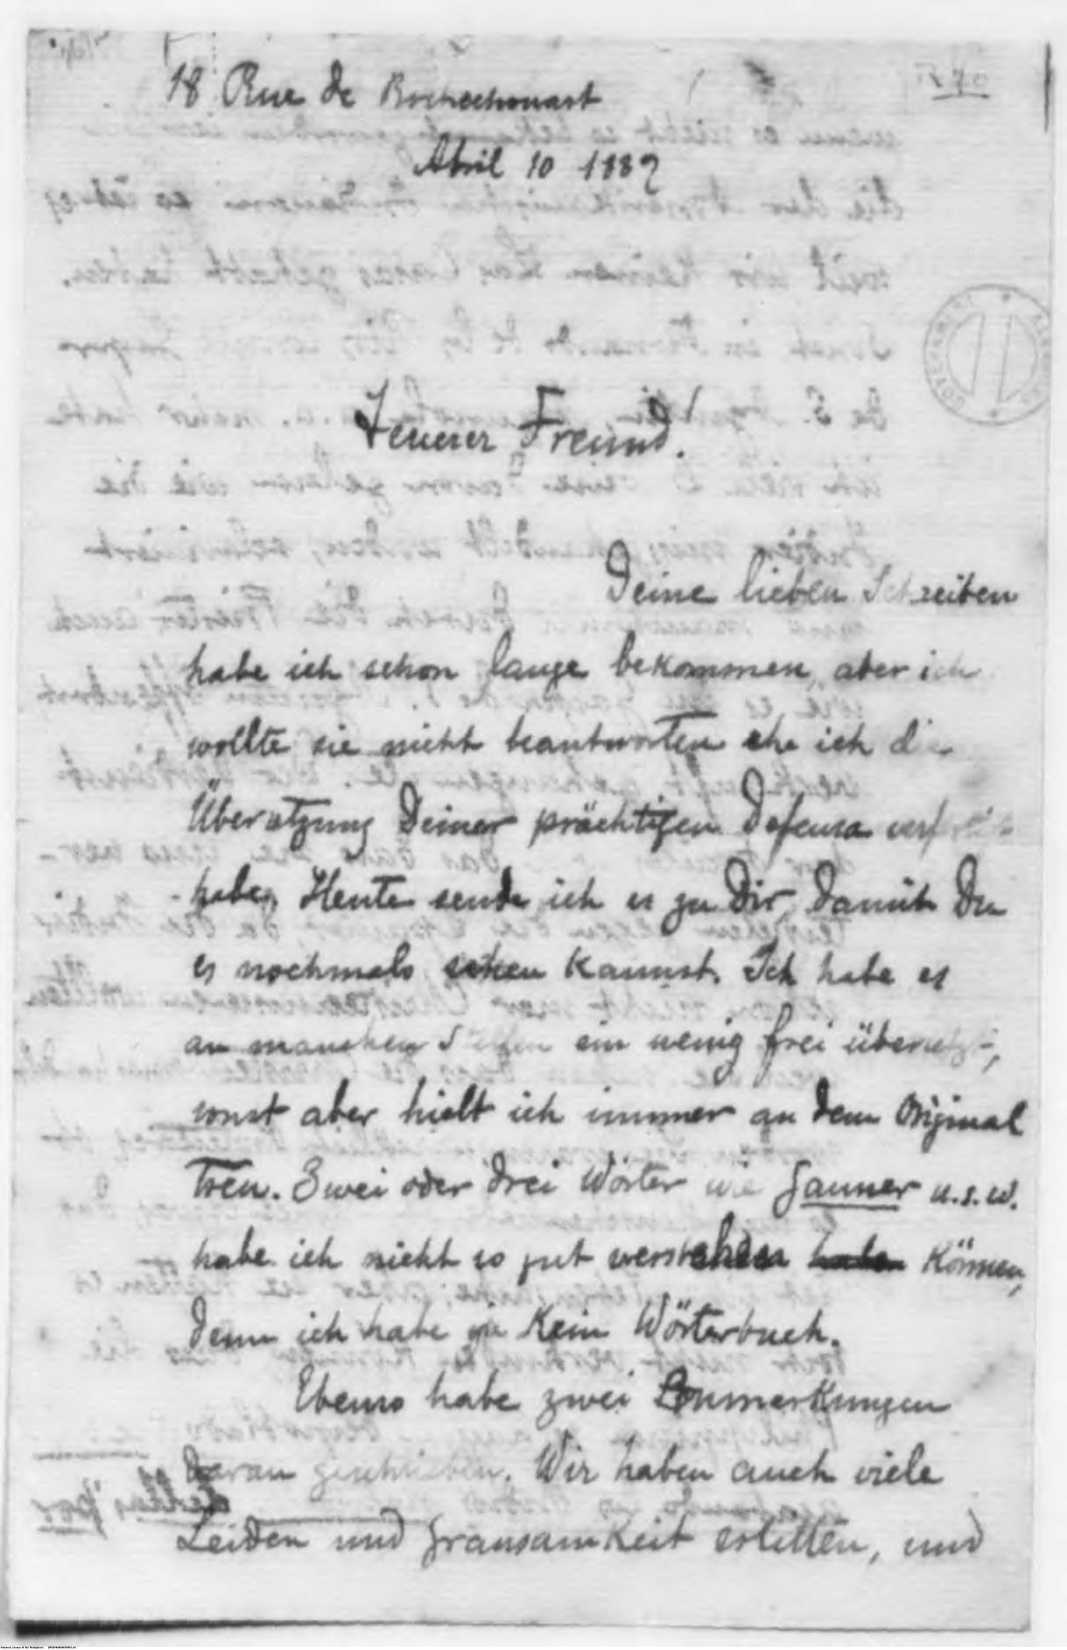 18 Rue de Rochechouart
Abril 10 1889
Teuerer Freund!
Deine lieben Schreiben
habe ich schon lange bekommen, aber ich
wollte sie nicht beantworten ehe ich die
Übersetzung Deiner prächtigen Defensa
habe. Heute sende ich es zu Dir, damit Du
es nochmals sehen kannst. Ich habe es
an manchen Stellen ein wenig frei übersetzt,
sonst aber hielt ich immer an dem Original
Treu. Zwei oder drei Wörter wie Gauner u.s.w.
habe ich nicht so gut verstehen haben können,
denn ich habe ja kein Wörterbuch.
Ebenso habe zwei Anmerkungen
daran geschrieben. Wir haben auch viele
Leiden und Grausamkeit erlitten, und